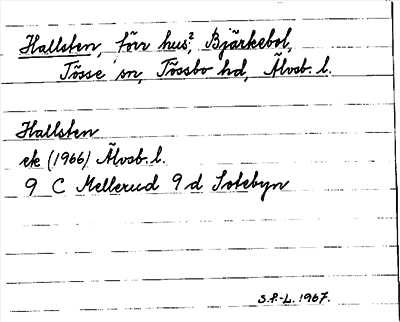 Hallsten, förr hus², Bjärkebol,
Tösse sn, Tössbo hd, Älvsb. l.
Hallsten
ek (1966) Älvsb. l.
9 C Mellerud 9 d Sotebyn
S.F.-L. 1967.